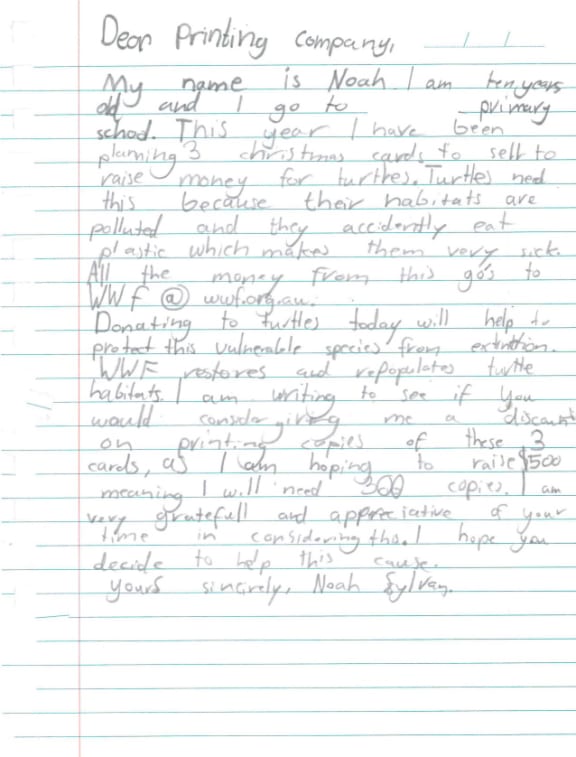 Dear Printing company, / /
My name is Noah I am ten years
old and I go to primary
school. This year I have been
planning 3 christmas cards to sell to
raise money for turtles. Turtles need
this because their habitats are
polluted and they accidently eat
plastic which makes them very sick.
All the money from this go's to
WWF @ wwf.org.au.
Donating to turtles today will help to
protect this vulnerable species from extintion.
WWF restores and repopulates turtle
habitats. I am writing to see if you
would consider giving me a discount
on printing copies of these 3
cards, as I am hoping to raise $500
meaning I will need 300 copies. I am
very gratefull and appreciative of your
time in considering this. I hope you
decide to help this cause.
Yours sincirely, Noah Sylvan.